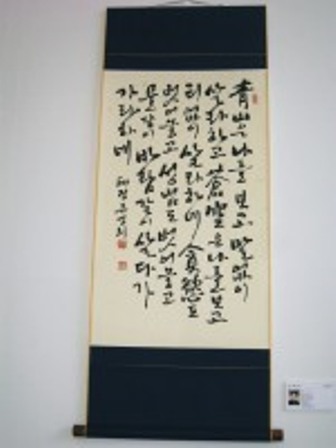 靑山은 나를 보고 말없이
살라하고 蒼空은 나를 보고
티없이 살라하네 貪慾도
벗어놓고 성냄도 벗어놓고
물같이 바람같이 살다가
가라하네